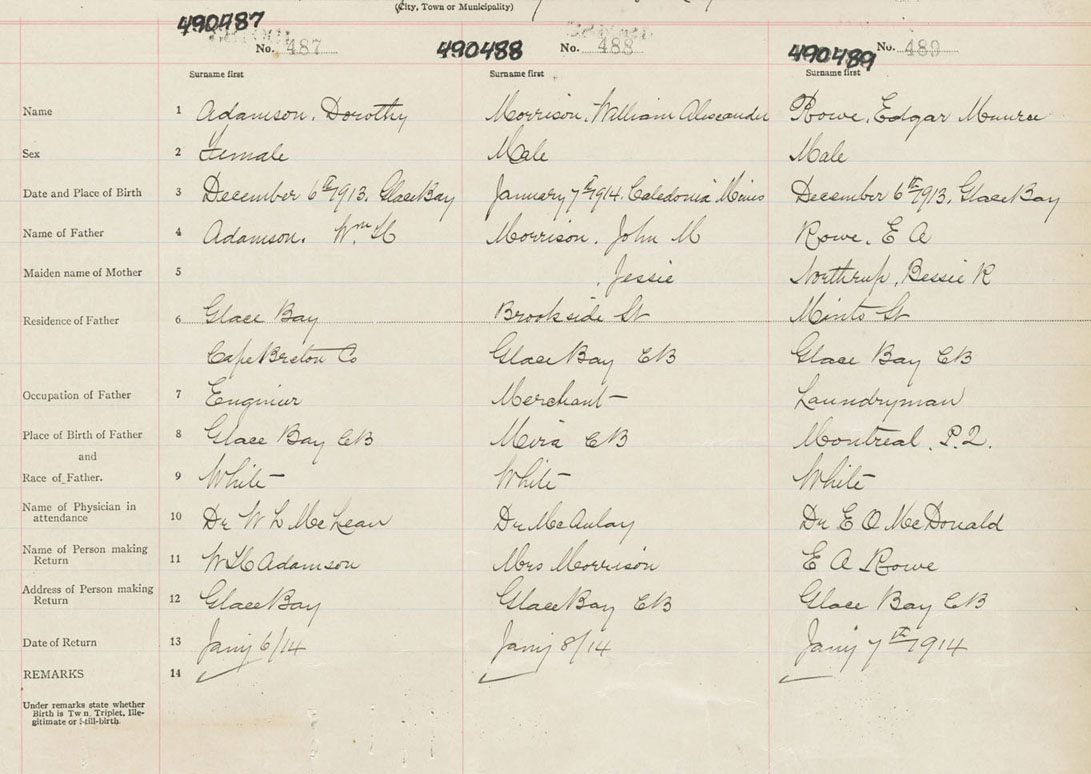 (City, Town or Municipality)
490487 490488 490489
No. 487 No. 488 No. 489
Surname first Surname first Surname first
Name 1 Adamson, Dorothy Morrison, William Alexander Rowe, Edgar Munroe
Sex 2 Female Male Male
Date and Place of Birth 3 December 6th 1913. Glace Bay January 7th 1914. Caledonia Mines December 6th 1913. Glace Bay
Name of Father 4 Adamson, Wm H Morrison, John M Rowe, E A
Maiden name of Mother 5 , Jessie Northrup, Bessie R
Residence of Father 6 Glace Bay Brookside St Minto St
Cape Breton Co Glace Bay CB Glace Bay CB
Occupation of Father 7 Engineer Merchant Laundryman
Place of Birth of Father 8 Glace Bay CB Mira CB Montreal. P.Q.
and
Race of Father. 9 White White White
Name of Physician in attendance 10 Dr W L McLean Dr McAulay Dr E O McDonald
Name of Person making Return 11 W H Adamson Mrs Morrison E A Rowe
Address of Person making Return 12 Glace Bay Glace Bay CB Glace Bay CB
Date of Return 13 Jany 6/14 Jany 8/14 Jany 7th 1914
REMARKS 14
Under remarks state whether
Birth is Tw n, Triplet, Ille-
gitimate or Still-birth.